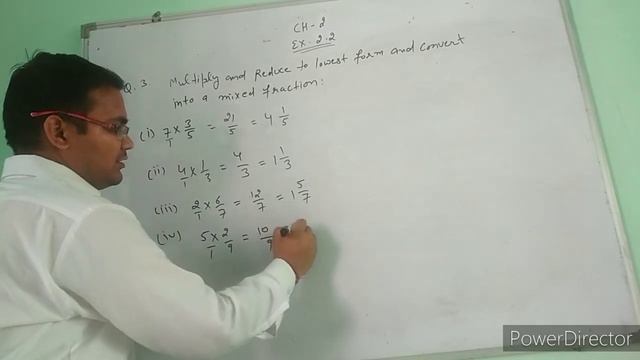 CH-2
EX-2.2
Q.3 Multiply and Reduce to lowest form and convert
into a mixed fraction:
(i) 7/1 × 3/5 = 21/5 = 4 1/5
(ii) 4/1 × 1/3 = 4/3 = 1 1/3
(iii) 2/1 × 6/7 = 12/7 = 1 5/7
(iv) 5/1 × 2/9 = 10/9
PowerDirector